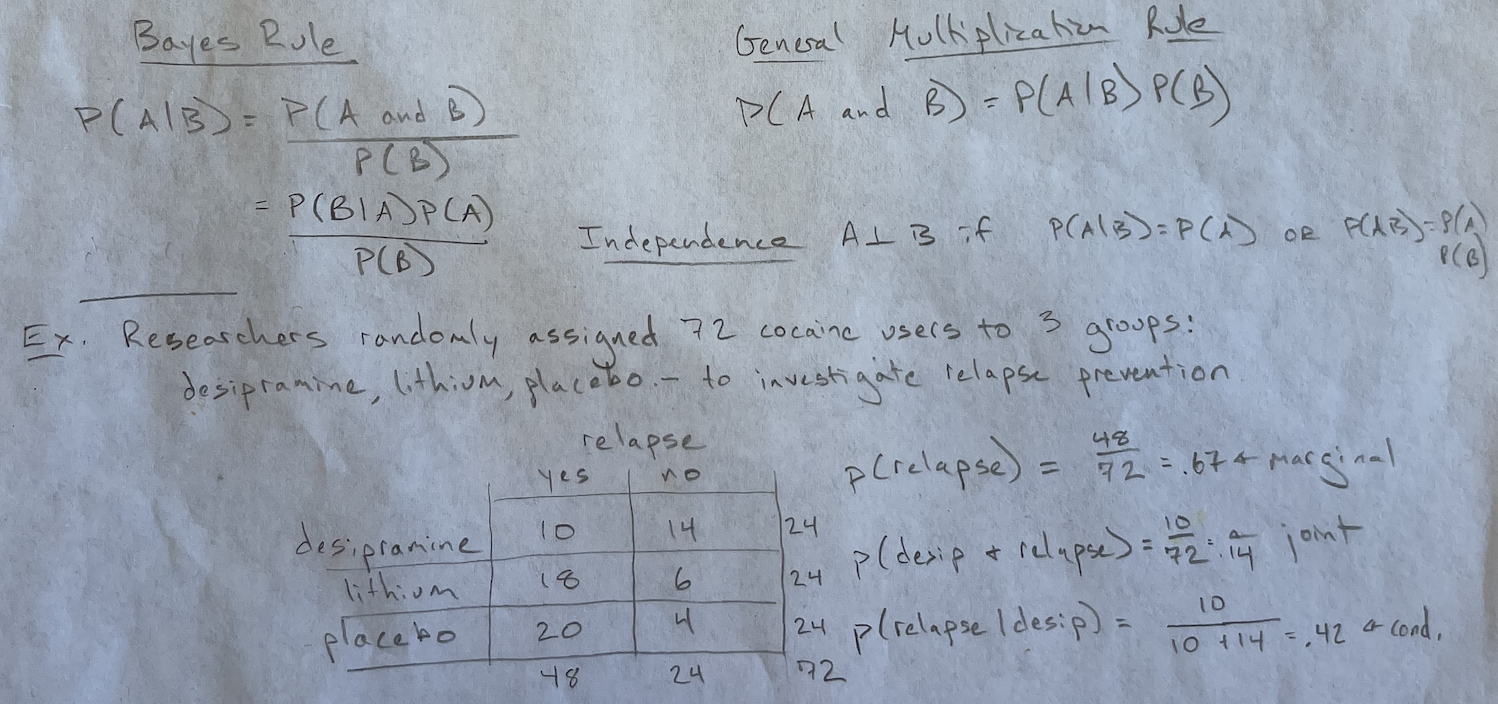 Bayes Rule
P(A|B) = P(A and B)
P(B)
= P(B|A)P(A)
P(B)
General Multiplication Rule
P(A and B) = P(A|B)P(B)
Independence A⊥B if P(A|B)=P(A) OR P(AB)=P(A)
P(B)
Ex. Researchers randomly assigned 72 cocaine users to 3 groups:
desipramine, lithium, placebo. – to investigate relapse prevention
relapse
yes no
desipramine 10 14 24
lithium 18 6 24
placebo 20 4 24
48 24 72
p(relapse) = 48/72 = .67 ← marginal
p(desip + relapse) = 10/72 = .14 joint
p(relapse | desip) = 10/10+14 = .42 ← cond.